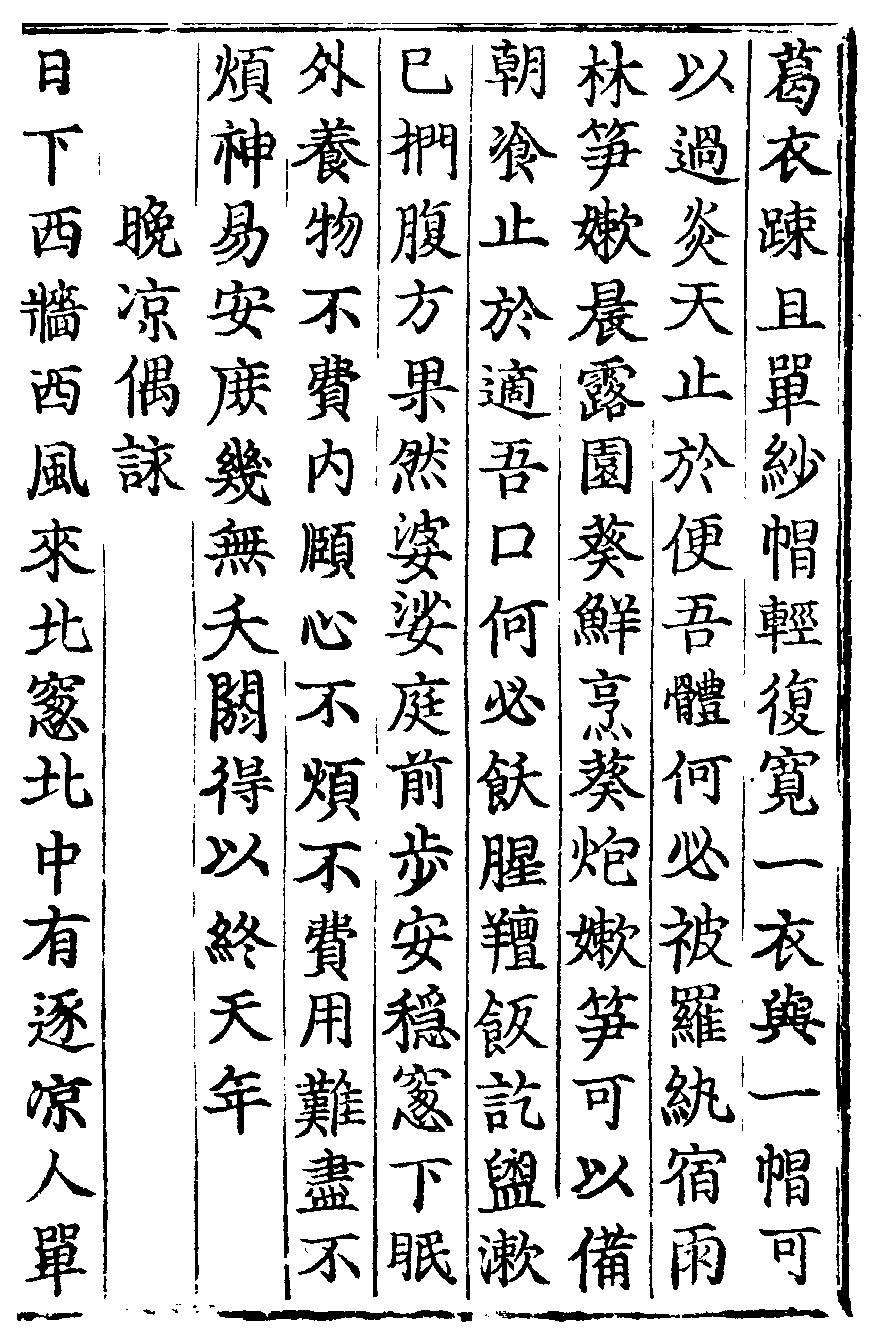 葛衣踈且單紗㡌輕復寛一衣與一㡌可
以過炎天止於便吾體何必被羅紈宿雨
林笋嫩晨露園葵鮮烹葵炮嫩笋可以備
朝飡止於適吾口何必飫腥羶飯訖盥漱
已捫腹方果然婆娑庭前步安穩窓下眠
外養物不費内顧心不煩不費用難盡不
煩神易安庶幾無夭閼得以終天年
晚凉偶詠
日下西牆西風來北窓北中有逐凉人單